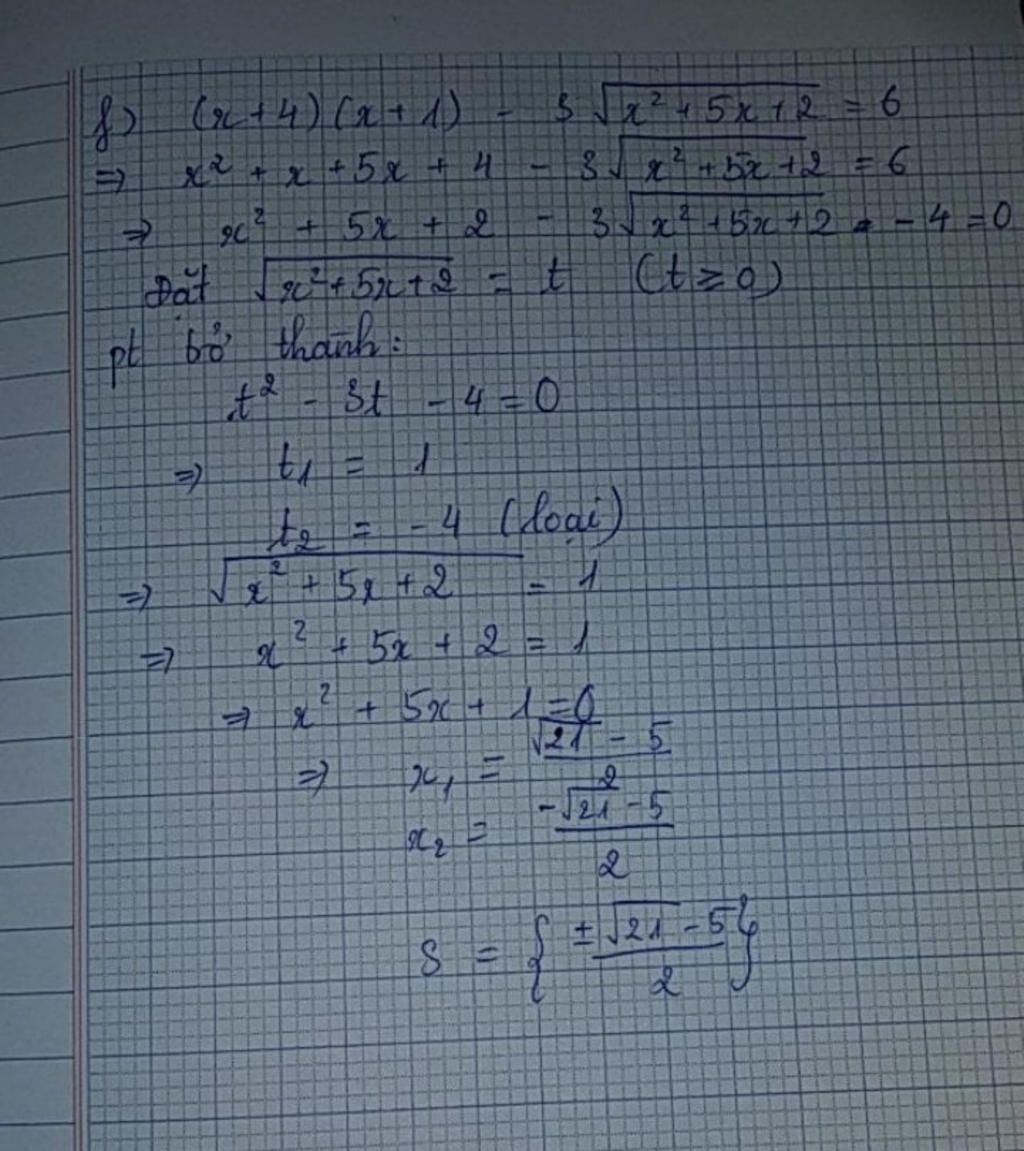 f) (x+4)(x+1) - 3√(x² + 5x + 2) = 6
=> x² + x + 5x + 4 - 3√(x² + 5x + 2) = 6
=> x² + 5x + 2 - 3√(x² + 5x + 2) - 4 = 0
Đặt √(x² + 5x + 2) = t (t ≥ 0)
pt bở thành:
t² - 3t - 4 = 0
=> t₁ = 1
t₂ = -4 (loại)
=> √(x² + 5x + 2) = 1
=> x² + 5x + 2 = 1
=> x² + 5x + 1 = 0
=> x₁ = (√21 - 5)/2
x₂ = (-√21 - 5)/2
S = {(±√21 - 5)/2}